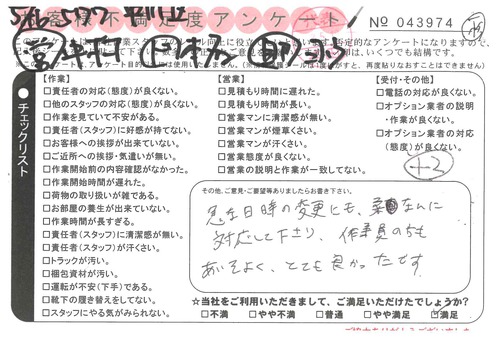 お客様不満足度アンケート
No 043974
チェックリスト
【作業】
□責任者の対応(態度)が良くない。
□他のスタッフの対応(態度)が良くない。
□作業を見ていて不安がある。
□責任者(スタッフ)に好感が持てない。
□お客様への挨拶が出来ていない。
□ご近所への挨拶・気遣いが無い。
□作業開始前の内容確認がなかった。
□作業開始時間が遅れた。
□荷物の取り扱いが雑である。
□お部屋の養生が出来ていない。
□作業時間が長すぎる。
□責任者(スタッフ)に清潔感が無い。
□責任者(スタッフ)が汗くさい。
□トラックが汚い。
□梱包資材が汚い。
□運転が不安(下手)である。
□靴下の履き替えをしてない。
□スタッフにやる気がみられない。
【営業】
□見積もり時間に遅れた。
□見積もり時間が長い。
□営業マンに清潔感が無い。
□営業マンが煙草くさい。
□営業マンが汗くさい。
□営業態度が良くない。
□営業の説明と作業が一致してない。
【受付・その他】
□電話の対応が良くない。
□オプション業者の説明
・作業が良くない。
□オプション業者の対応
(態度)が良くない。
+2
その他、ご意見・ご要望等ありましたらお書き下さい。
急な日時の変更にも、柔なんに
対応して下さり、作業員の方も
あいそよく、とても良かったです
☆当社をご利用いただきまして、ご満足いただけたでしょうか?
□不満 □やや不満 □普通 □やや満足 □満足